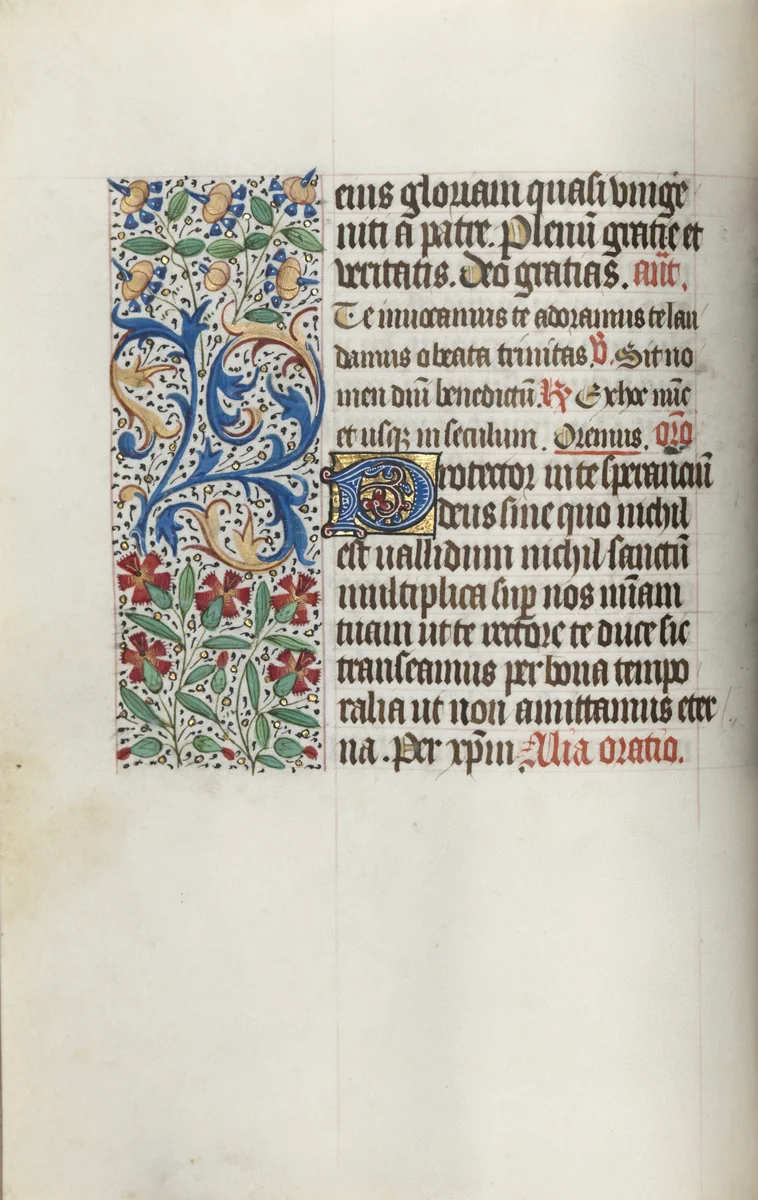 eius gloriam quasi vnige
niti a patre. Plenū gratie et
veritatis. Deo gratias. añt.
Te inuocamus te adoramus te lau
damus o beata trinitas. ℣. Sit no
men dn̄i benedictū. ℟ Ex hoc nūc
et usqꝫ in seculum. Oremus. or̄o
Protector in te speranciū
deus sine quo nichil
est uallidum nichil sanctū
multiplica suꝑ nos mīam
tuam ut te rectore te duce sic
transeamus per bona tempo
ralia ut non amittamus eter
na. Per xp̄m Alia oratio.